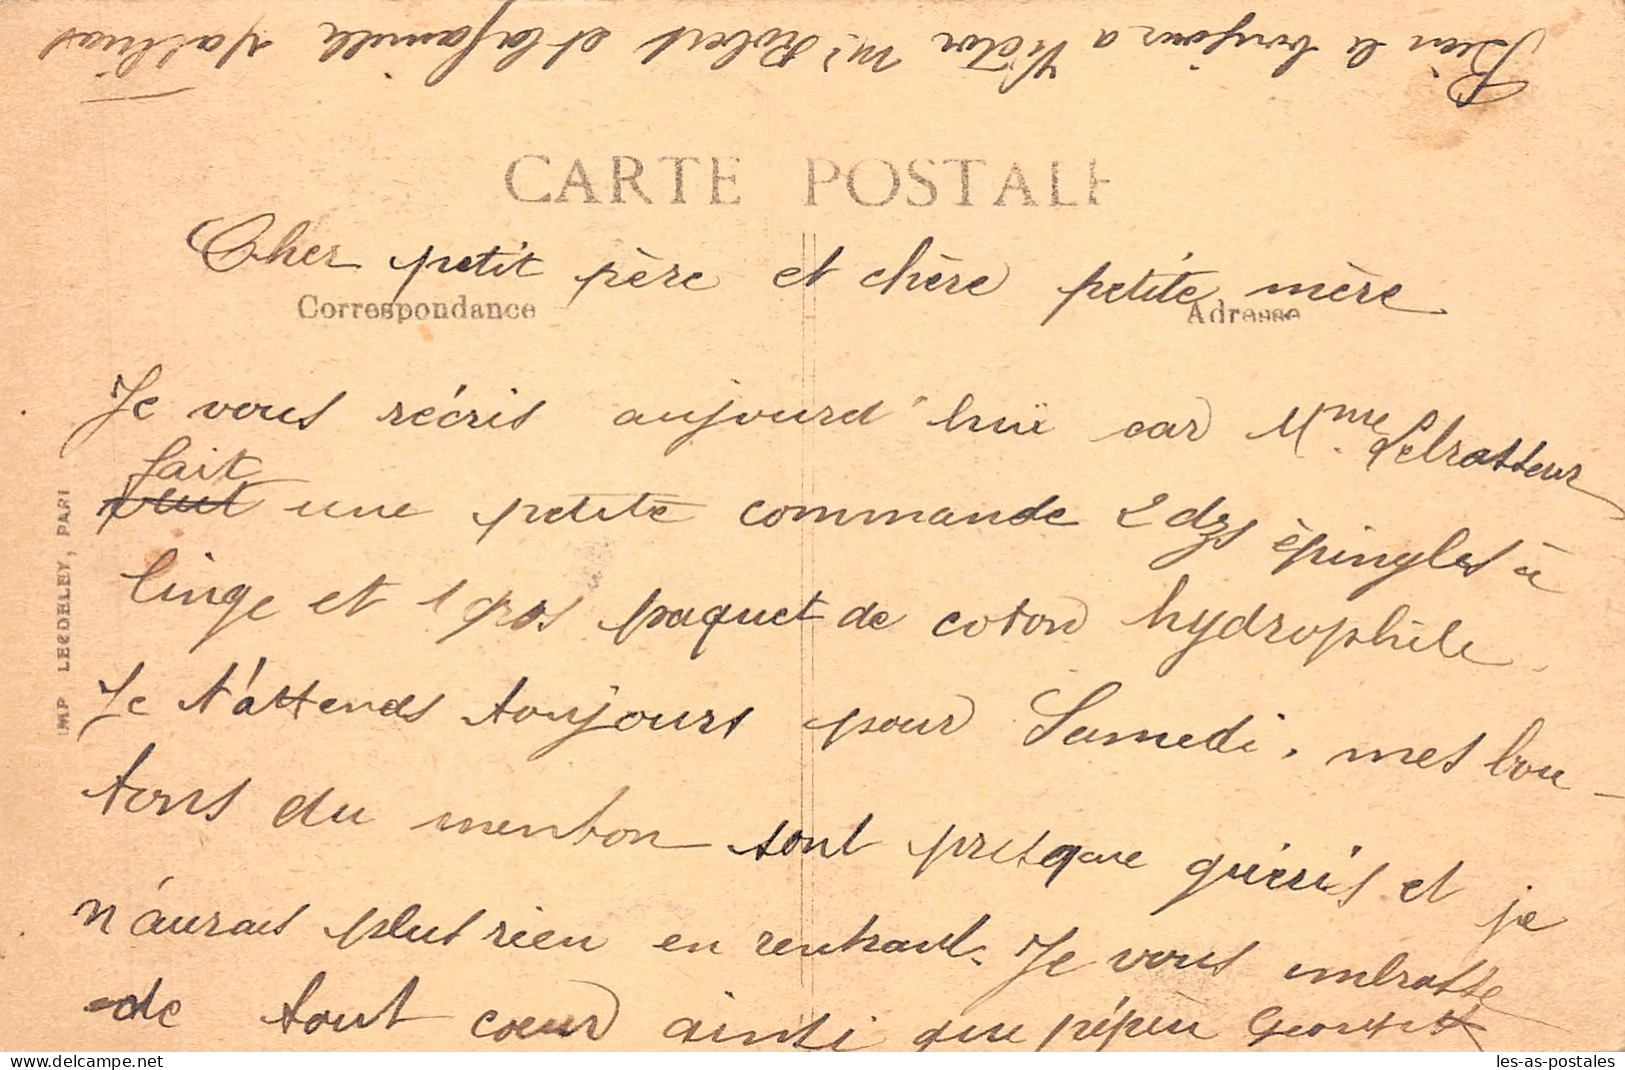 Bien le bonjour a Victor Mr Robert et la famille
CARTE POSTALE
Cher petit père et chère petite mère
Correspondance
Adresse
Je vous récris aujourd'hui car Mme
fait
veut une petite commande 2 dzs épingles à
linge et 1 gros paquet de coton hydrophile
Je t'attends toujours pour Samedi. mes bou-
tons du menton sont presque guéris et je
n'aurais plus rien en rentrant. Je vous embrasse
de tout cœur ainsi que pépèn Georgette
IMP LEDELEY, PARI
les-as-postales